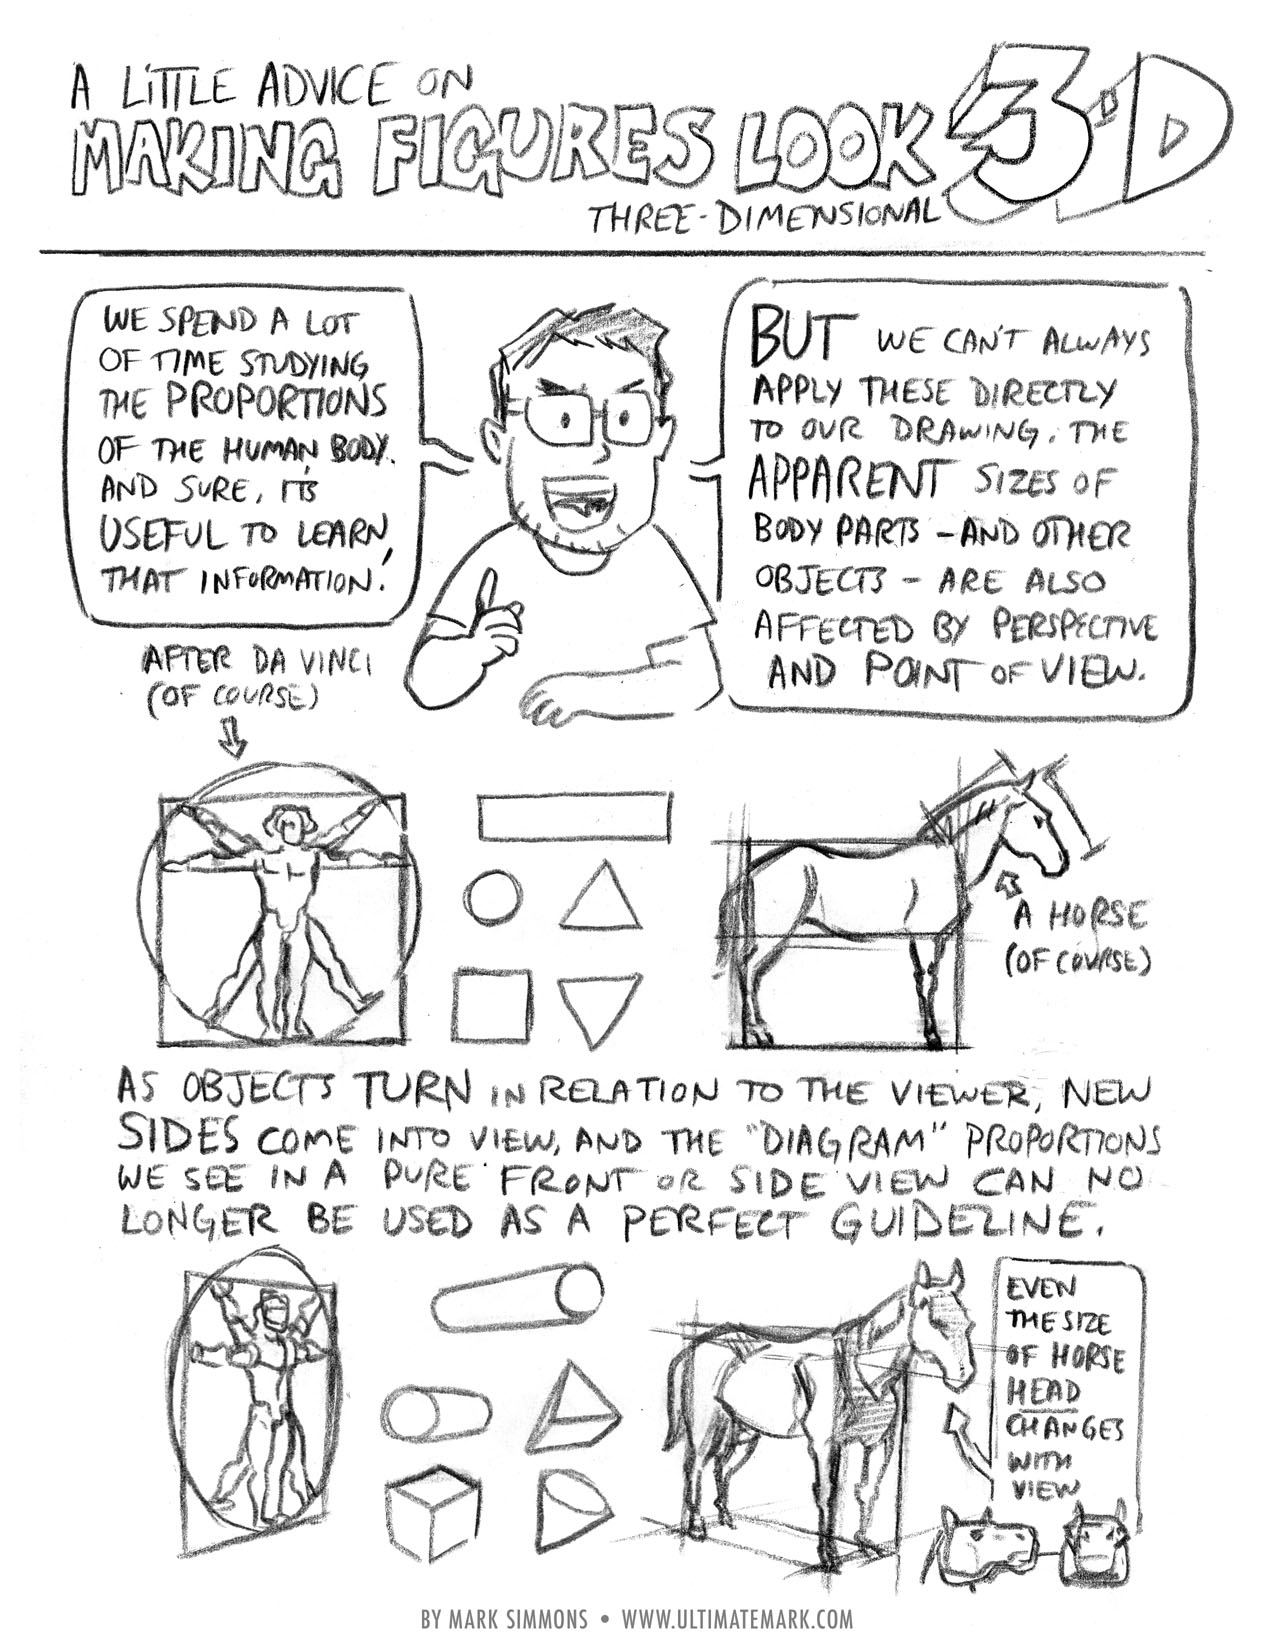 A LITTLE ADVICE ON
MAKING FIGURES LOOK 3-D
THREE-DIMENSIONAL
WE SPEND A LOT
OF TIME STUDYING
THE PROPORTIONS
OF THE HUMAN BODY.
AND SURE, IT'S
USEFUL TO LEARN
THAT INFORMATION!
BUT WE CAN'T ALWAYS
APPLY THESE DIRECTLY
TO OUR DRAWING. THE
APPARENT SIZES OF
BODY PARTS - AND OTHER
OBJECTS - ARE ALSO
AFFECTED BY PERSPECTIVE
AND POINT OF VIEW.
AFTER DA VINCI
(OF COURSE)
A HORSE
(OF COURSE)
AS OBJECTS TURN IN RELATION TO THE VIEWER, NEW
SIDES COME INTO VIEW, AND THE "DIAGRAM" PROPORTIONS
WE SEE IN A PURE FRONT OR SIDE VIEW CAN NO
LONGER BE USED AS A PERFECT GUIDELINE.
EVEN
THE SIZE
OF HORSE
HEAD
CHANGES
WITH
VIEW
BY MARK SIMMONS • WWW.ULTIMATEMARK.COM